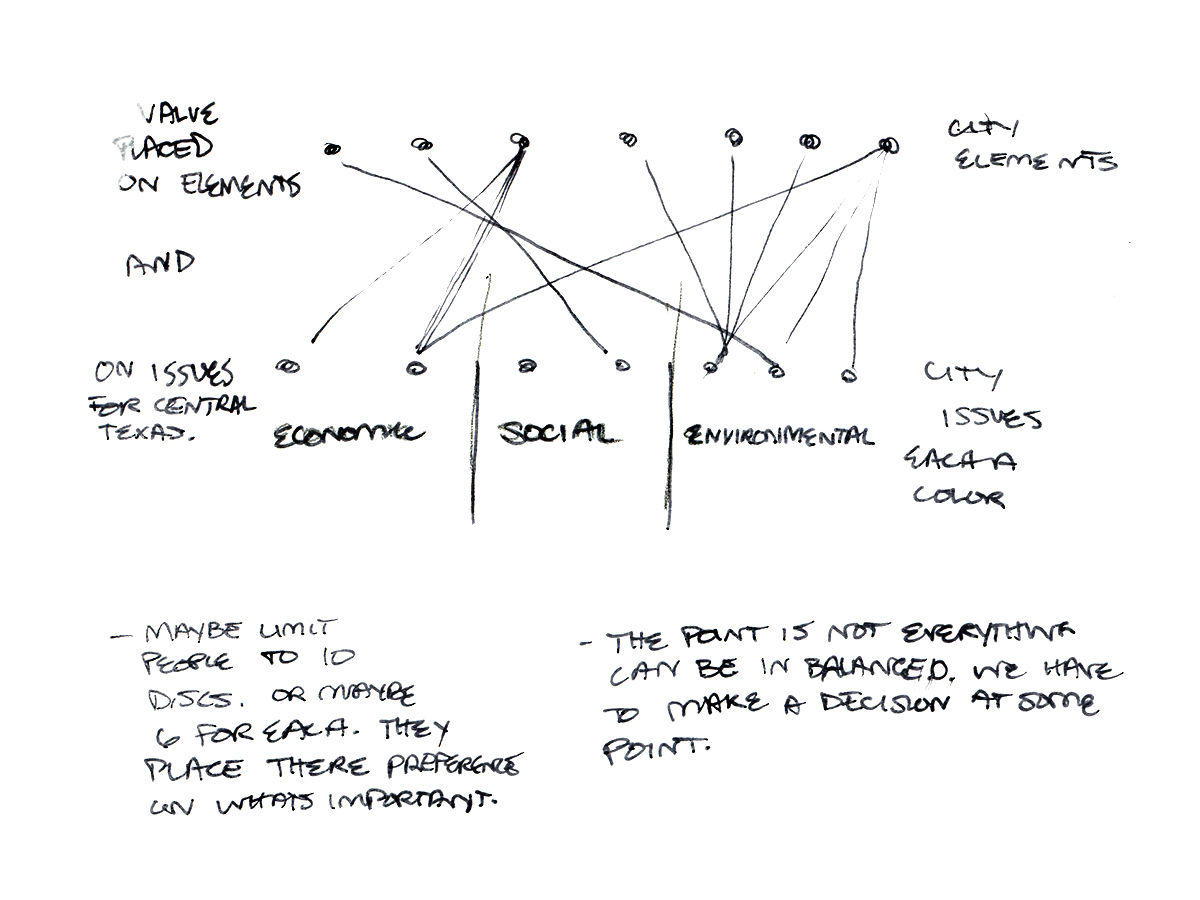 VALUE
PLACED
ON ELEMENTS
AND
ON ISSUES
FOR CENTRAL
TEXAS.
CITY
ELEMENTS
ECONOMIC
SOCIAL
ENVIRONMENTAL
CITY
ISSUES
EACH A
COLOR
- MAYBE LIMIT
PEOPLE TO 10
DISCS. OR MAYBE
6 FOR EACH. THEY
PLACE THERE PREFERENCE
ON WHATS IMPORTANT.
- THE POINT IS NOT EVERYTHING
CAN BE IN BALANCED. WE HAVE
TO MAKE A DECISION AT SOME
POINT.